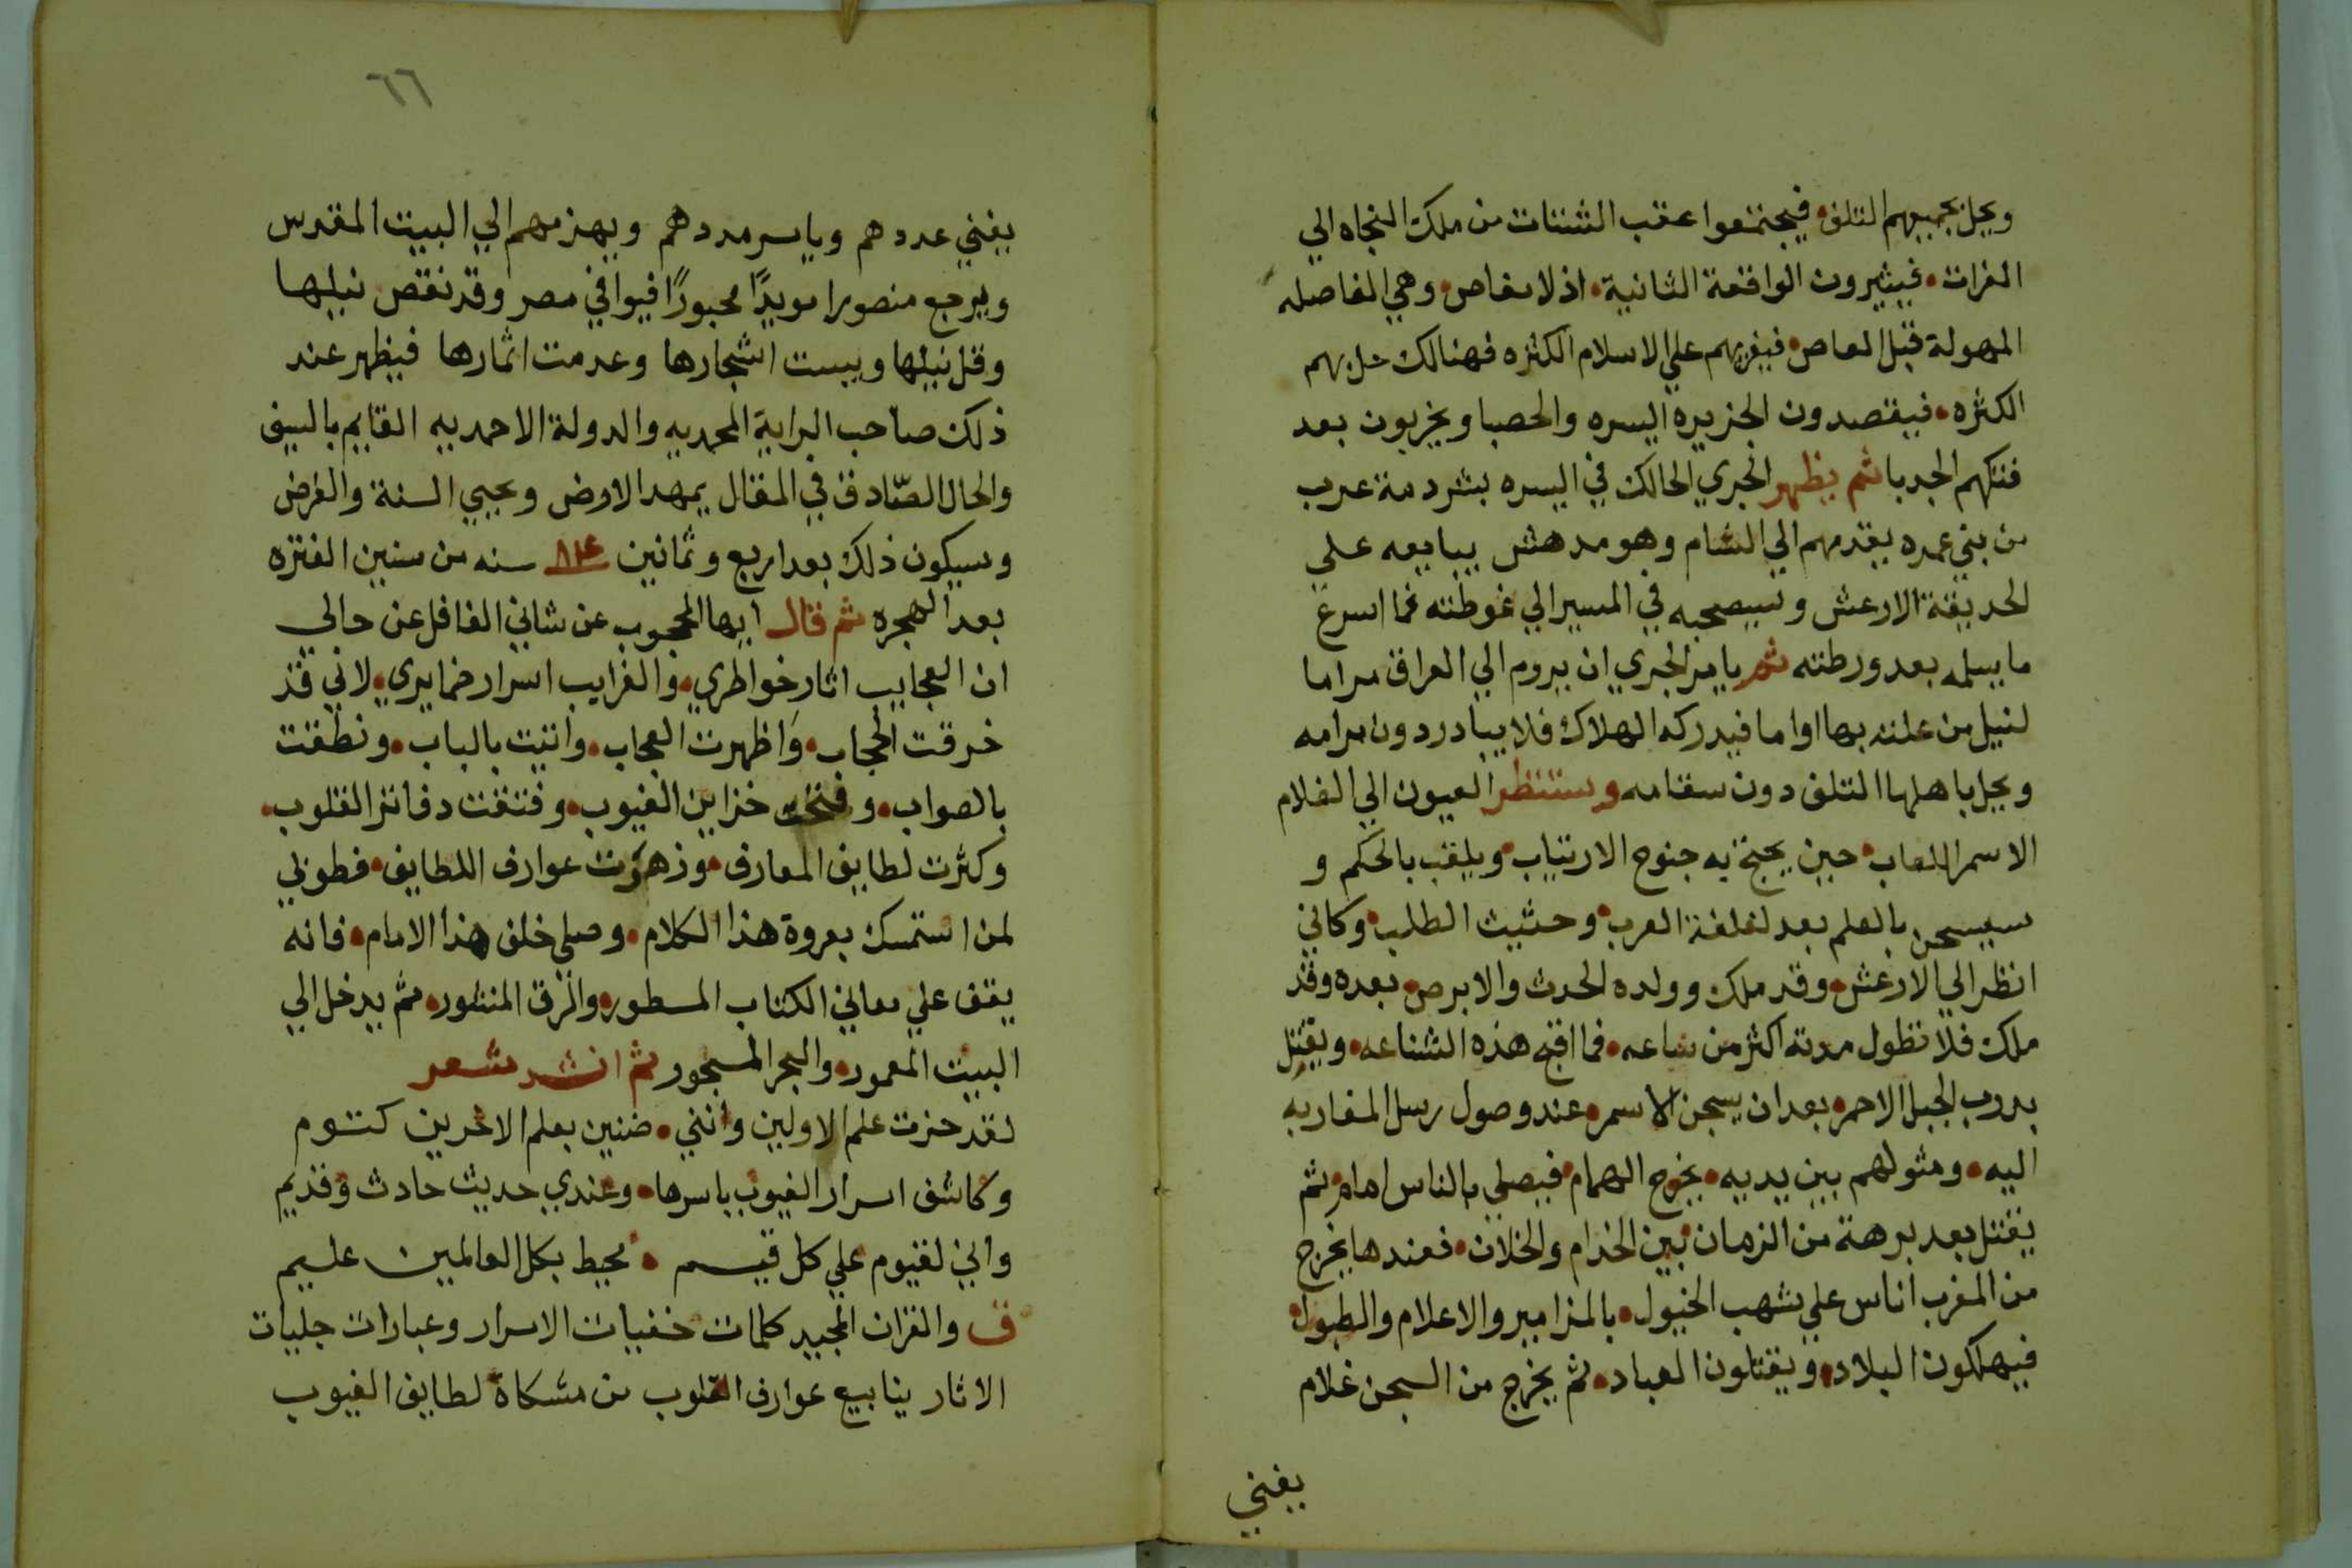 ويحل بجميعهم التلف فيجتمعوا عقب الشتات من ملك النجاه الي
الفرات فيثيرون الواقعة الثانية اذ لا مفاص وهي الفاصله
المهولة قبل العاص فيغريهم علي الاسلام الكثره فهنالك حل بهم
الكثره فيقصدون الجزيره اليسره والحصبا ويخربون بعد
فتكهم الجدبا ثم يظهر الجري الحالك في اليسره بشردمة عرب
من بني عمره يقدمهم الي الشام وهو مدهش يبايعه علي
الحديقة الارعش وسيصحبه في المسير الي غوطته فما اسرع
ما يسلمه بعد ورطته ثم يامر الجري ان يروم الي العراق مراما
لنيل من علته بها اواما فيدركه الهلاك فلا يبادر دون مرامه
ويحل باهلها التلف دون سقامه وستنظر العيون الي الغلام
الاسمر اللعاب حين يجنح به جنوح الارتياب ويلقب بالحكم و
سيسجن بالعلم بعد لغلغة العرب وحثيث الطلب وكاني
انظر الي الارعش وقد ملك وولده الحدث والابرص بعده وقد
ملك فلا تطول مدته اكثر من ساعه فما اقبح هذه الشناعه ويقتل
بدرب الجبل الاحمر بعد ان يسجن الاسمر عند وصول رسل المغاربه
اليه ومثولهم بين يديه يخرج الهمام فيصلي بالناس امام ثم
يقتل بعد برهة من الزمان بين الخدام والخلان فعندها يخرج
من المغرب اناس علي شهب الخيول بالمزامير والاعلام والطبول
فيهلكون البلاد ويقتلون العباد ثم يخرج من السجن غلام
يفني
٦٦
يفني عددهم وياسر مددهم ويهزمهم الي البيت المقدس
ويرجع منصورا مويدًا محبورًا فيوافي مصر وقد نقص نيلها
وقل نيلها ويبست اشجارها وعدمت اثمارها فيظهر عند
ذلك صاحب الراية المحمديه والدولة الاحمديه القايم بالسيف
والحال الصّادق في المقال يمهد الارض ويحيي السنة والفرض
وسيكون ذلك بعد اربع وثمانين سنه من سنين الفتره
بعد الهجره ثم قال ايها المحجوب عن شاني الغافل عن حالي
ان العجايب اثار خواطري والغرايب اسرار ضمايري لاني قد
خرقت الحجاب واظهرت العجاب واتيت بالباب ونطقت
بالصواب وفتحت خزاين الغيوب وفتقت دفاتر القلوب
وكثرت لطايف المعارف وزهرت عوارف اللطايف فطوبي
لمن استمسك بعروة هذا الكلام وصلي خلف هذا الامام فانه
يقف علي معاني الكتاب المسطور والرق المنشور ثم يدخل الي
البيت المعمور والبحر المسجور ثم انشد شعر
لقد حزت علم الاولين وانني ضنين بعلم الاخرين كتوم
وكاشف اسرار الغيوب باسرها وعندي حديث حادث وقديم
واني لقيوم علي كل قيم محيط بكل العالمين عليم
ق والقران المجيد كلمات خفيات الاسرار وعبارات جليات
الاثار ينابيع عوارف القلوب من مشكاة لطايف الغيوب